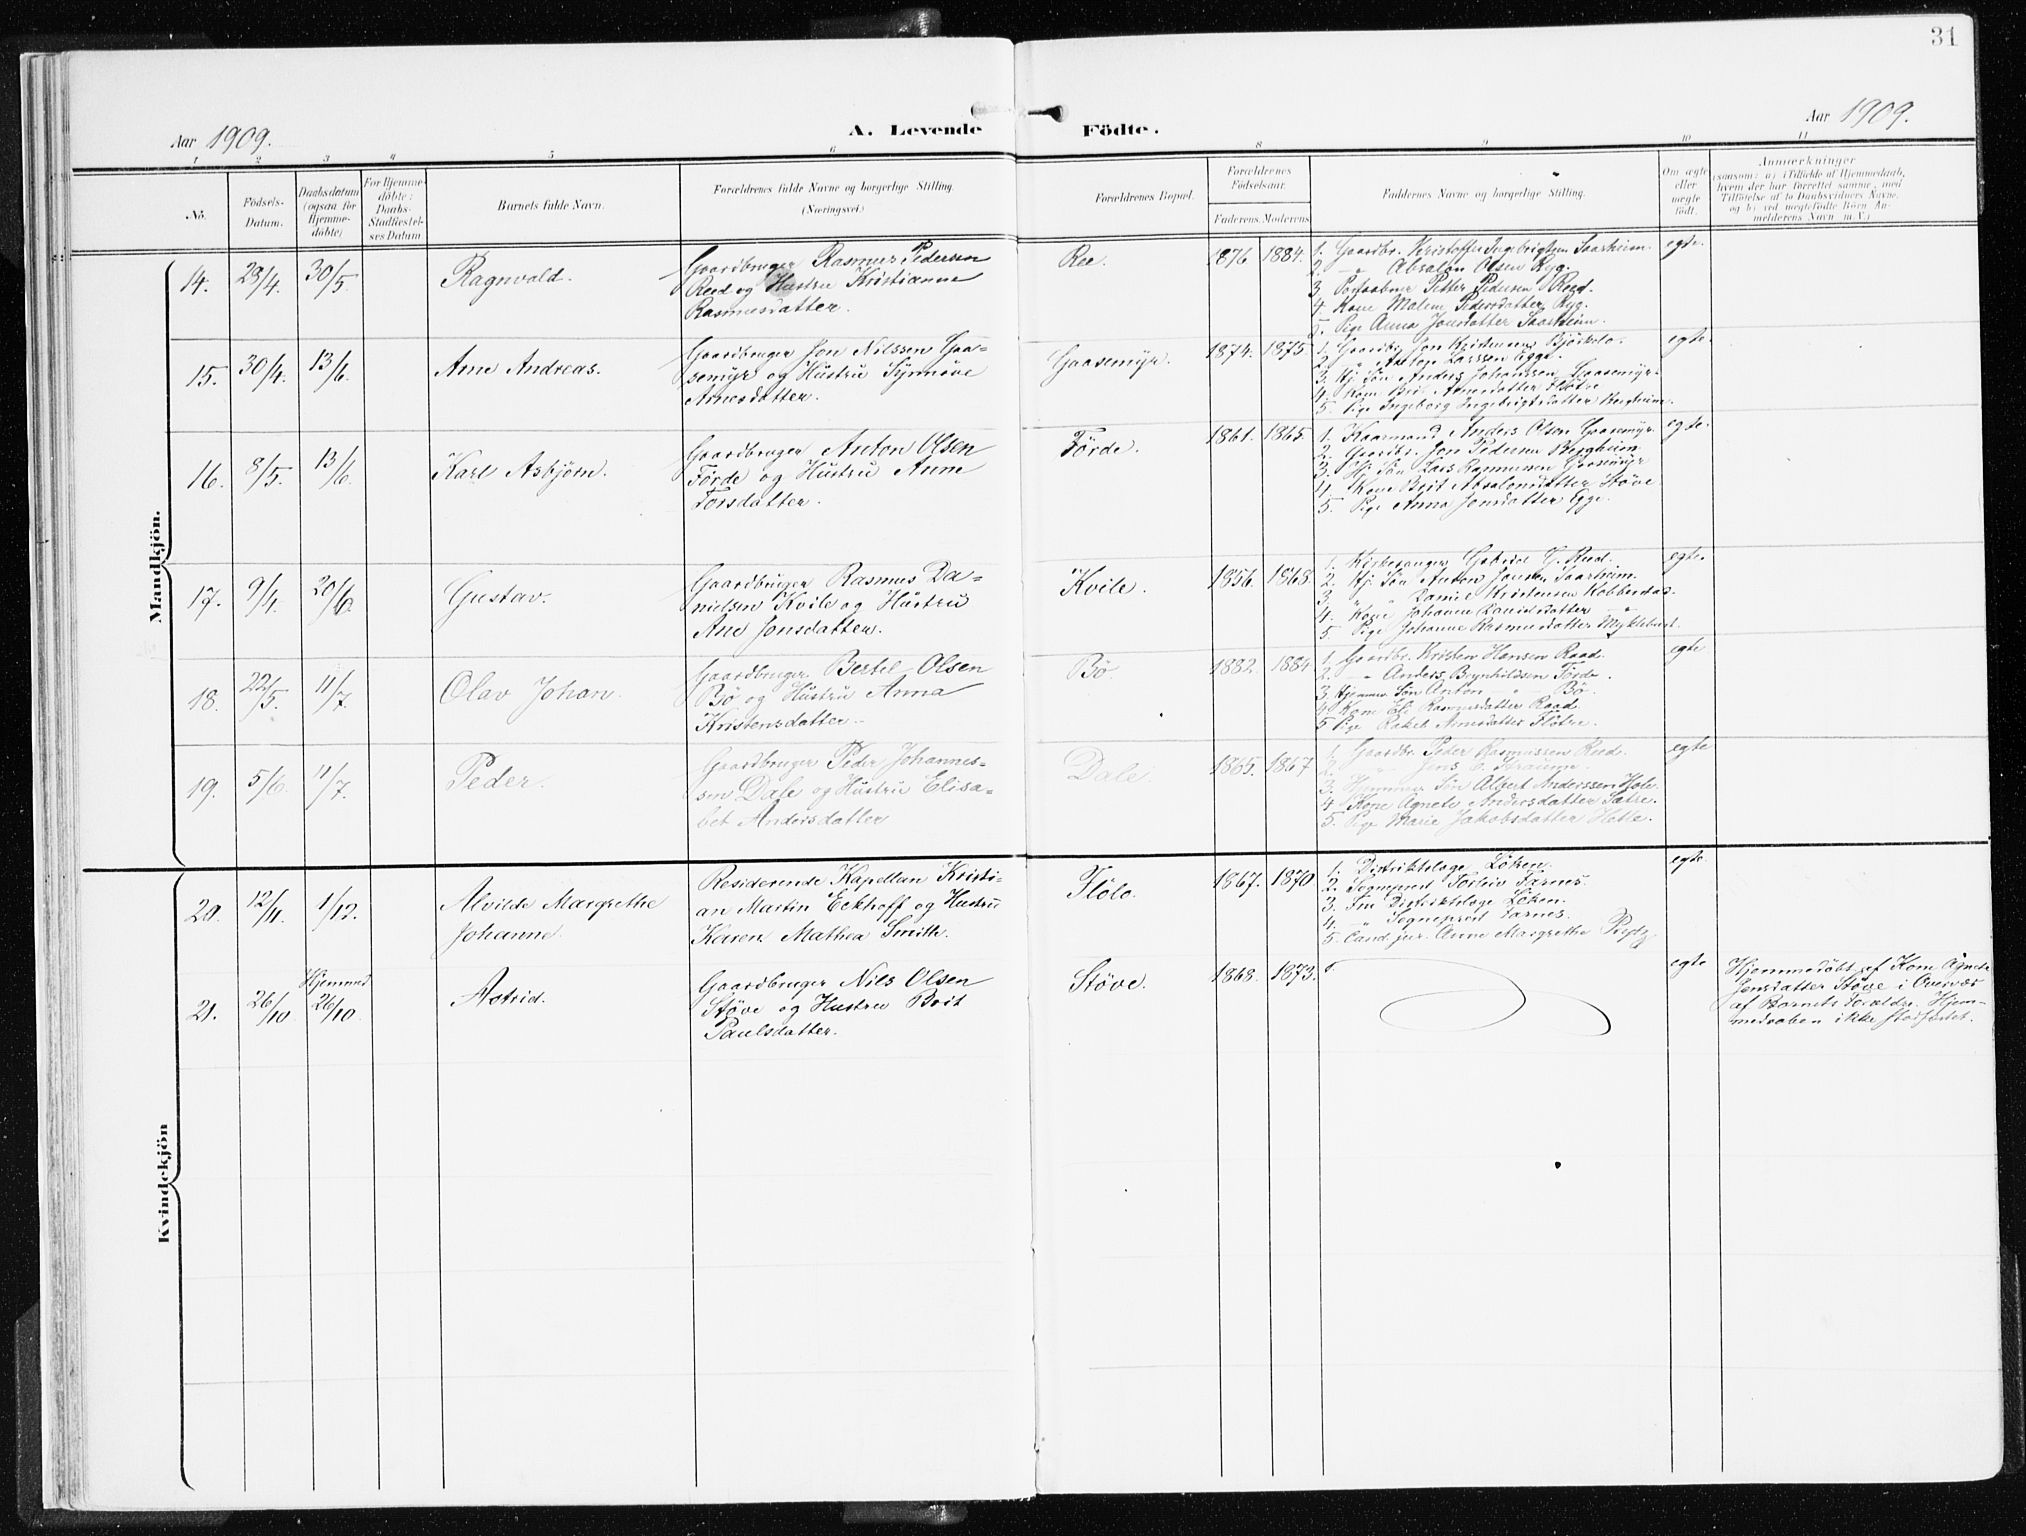 31
Aar 1909.
A. Levende Födte.
Aar 1909.
1 2 3 4 5 6 8 9 10 11
No.
Födsels-Datum.
Daabsdatum (ogsaa for Hjemme-döbte)
For Hjemme-döbte: Daabs-Stadfæstel-ses Datum
Barnets fulde Navn.
Forældrenes fulde Navne og borgerlige Stilling.
(Næringsvei.)
Forældrenes Bopæl.
Forældrenes Födselsaar.
Faderens. Moderens
Faddernes Navne og borgerlige Stilling.
Om ægte eller uægte födt.
Anmærkninger
(saasom: a) i Tilfælde af Hjemmedaab,
hvem der har forrettet samme, med
Tilföielse af to Daabsvidners Navne.
og b) ved uægtefödte Börn An-
melderens Navn m. V.)
Mandkjön.
14. 29/4. 30/5. Ragnvald.
Gaardbruger Rasmus Pedersen
Reed og Hustru Kristianne
Rasmusdatter.
Ree. 1876 1884.
1. Gaardbr. Kristoffer Ingebrigtsen Saarheim.
2. — " — Absalon Olsen Ryg.
3. Postaabner Petter Pedersen Reed.
4. Kone Malene Pedersdatter Ryg.
5. Pige Anna Jonsdatter Saarheim.
egte.
15. 30/4. 13/6. Arne Andreas.
Gaardbruger Jon Nilssen Gaa-
semyr og Hustru Synnöve
Arnesdatter.
Gaasemyr. 1874. 1875
1. Gaardbr. Jon Kristensen Björkelo.
2. " Anton Larssen Egge.
3. Hj. Søn Anders Johanssen Gaasemyr.
4. Kone Brit Arnesdatter Flötre
5. Pige Ingeborg Ingebrigtsdatter Bergheim.
egte.
16. 8/5. 13/6. Karl Asbjørn.
Gaardbruger Anton Olsen
Förde og Hustru Anne
Torsdatter.
Förde. 1861. 1865.
1. Kaarmand Anders Olsen Gaasemyr.
2. Gaardbr. Jon Pedersen Bergheim.
3. Hj. Søn Lars Rasmussen Gaasemyr
4. Kone Brit Absalonsdatter Støve.
5. Pige Anna Jonsdatter Egge.
egte.
17. 9/4. 20/6. Gustav.
Gaardbruger Rasmus Da-
nielsen Kvile og Hustru
Ane Jonsdatter.
Kvile. 1856. 1868.
1. Kirkesanger Gabriel G. Reed.
2. Hj. Søn Anton Jonsen Saarheim.
3. " " Daniel Kristensen Kobberstad.
4. Kone Johanne Danielsdatter — " —
5. Pige Johanne Rasmusdatter Myklebust.
egte.
18. 22/5. 11/7. Olav Johan.
Gaardbruger Bertel Olsen
Bø og Hustru Anna
Kristensdatter.
Bø. 1882. 1884
1. Gaardbr. Kristen Hansen Raad.
2. — " — Anders Brynhildsen Förde.
3. Hjemmev. Søn Anton — " — Bø.
4. Kone Eli Rasmusdatter Raad
5. Pige Rakel Arnesdatter Flötre.
egte
19. 5/6. 11/7. Peder.
Gaardbruger Peder Johannes-
sen Dale og Hustru Elisa-
bet Andersdatter
Dale. 1865. 1867
1. Gaardbr. Peder Rasmussen Reed.
2. — " — Jens
3. Hjemmev. Søn Albert Anderssen Hole.
4. Kone Agnete Andersdatter Sætre.
5. Pige Marie Jakobsdatter Hetle.
egte
Kvindekjön
20. 12/11. 1/12. Alvilde Margrethe
Johanne.
Residerende Kapellan Kristi-
an Martin Eckhoff og Hustru
Karen Mathea Smith.
Flölo. 1867. 1870
1. Distriktslæge Løken.
2. Sogneprest Farnes.
3. Fru Distriktslæge Løken.
4. — " — Sogneprest Farnes.
5. Cand. jur. Anne Margrethe
egte.
21. 26/10. Hjemmed. 26/10. Astrid.
Gaardbruger Nils Olsen
Støve og Hustru Brit
Paulsdatter.
Støve. 1868. 1873.
egte
Hjemmedöbt af Kone Agnete
Jensdatter Støve i Overvær
af Barnets Forældre. Hjem-
medaaben ikke stadfæstet.